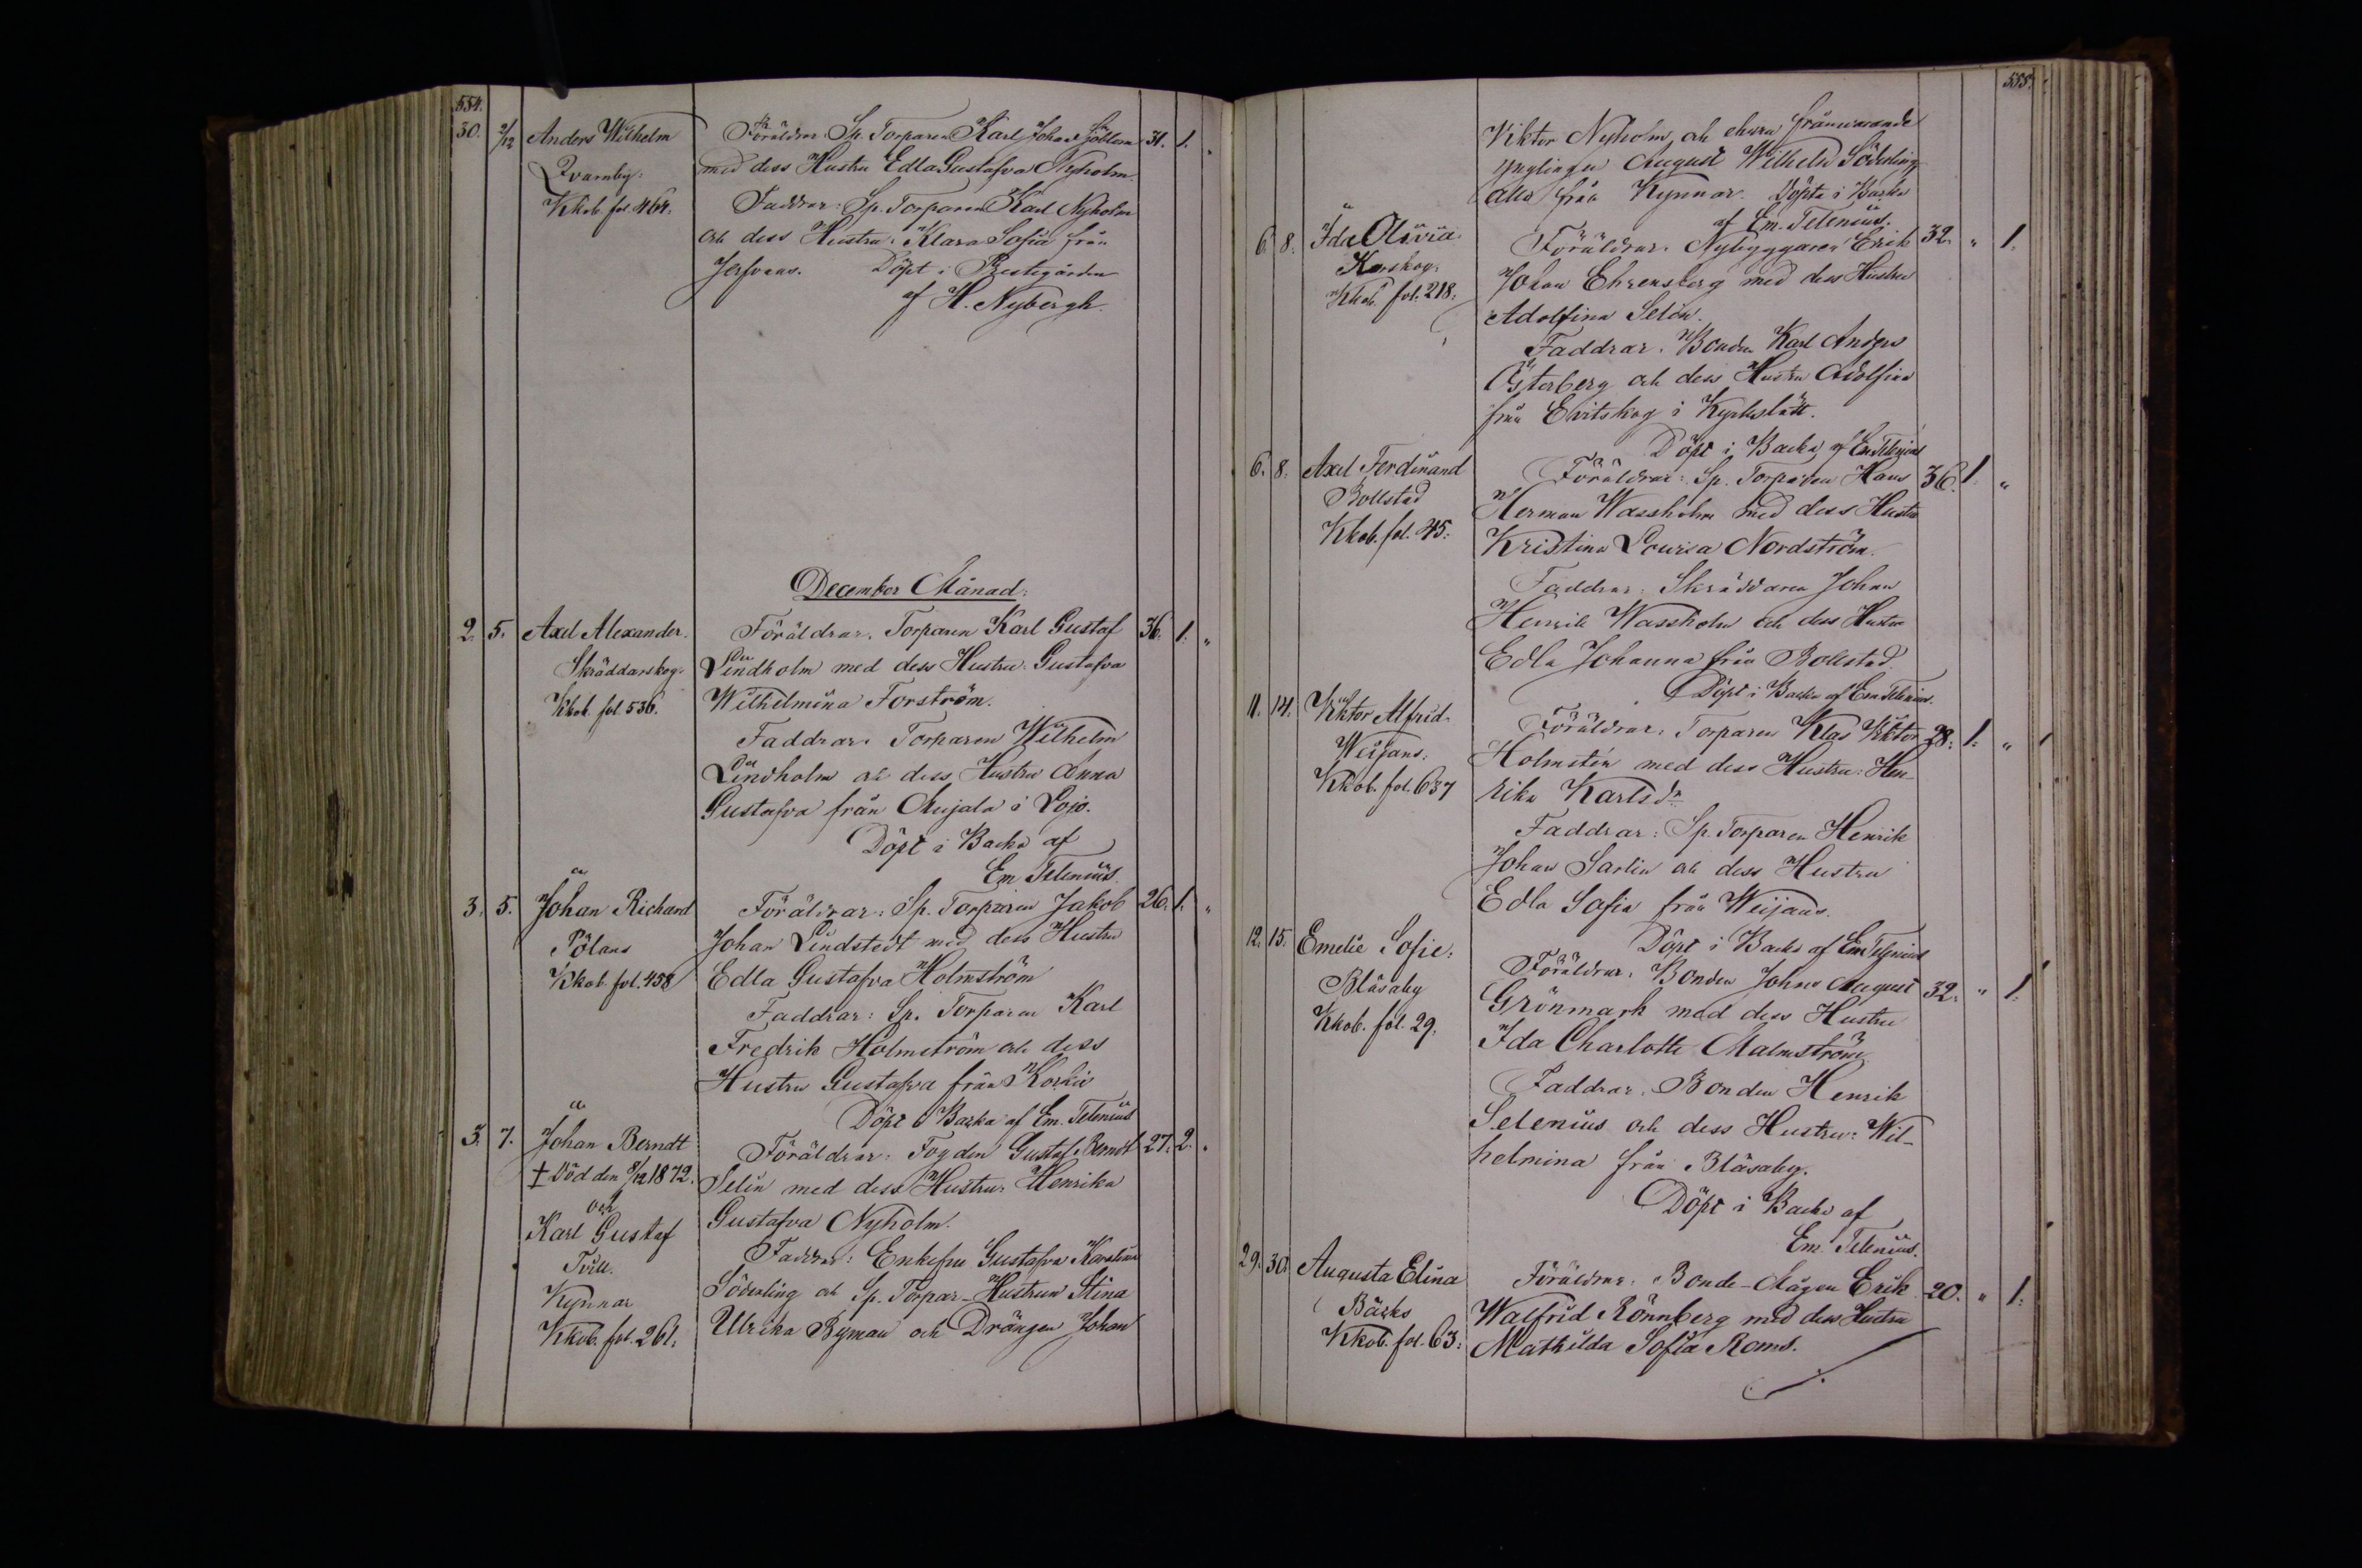 554.
30. 2/12 Anders Wilhelm Föräldrar: Sp. Torparen Karl Johan Sjöblom 31. 1. "
Qvarnby: med dess Hustru Edla Gustafva Nyholm.
Kkob. fol. 464. Faddrar: Sp. Torparen Karl Nyholm
och dess Hustru: Klara Sofia från
Jerfvans. Döpt i Prestgården
af H. Nybergh.
December Månad:
2. 5. Axel Alexander. Föräldrar. Torparen Karl Gustaf 36. 1. "
Skräddarskog. Lindholm med dess Hustru: Gustafva
Kkob. fol. 536. Wilhelmina Forström.
Faddrar: Torparen Wilhelm
Lindholm och dess Hustru Anna
Gustafva från i Lojo.
Döpt i Backa af
Em Telenius.
3. 5. Johan Richard Föräldrar: Sp. Torparen Jakob 26. 1. "
Pölans Johan Lindstedt med dess Hustru
Kkob. fol. 458 Edla Gustafva Holmström
Faddrar: Sp. Torparen Karl
Fredrik Holmström och dess
Hustru Gustafva från Korkis
Döpt i Backa af Em. Telenius
3. 7. Johan Berndt Föräldrar: Fogden Gustaf Berndt 27. 2. "
† Död den 8/12 1872. Selin med dess Hustru: Henrika
och Gustafva Nyholm.
Karl Gustaf Faddrar: Enkefru Gustafva Karolina
Tvill. Söderling och Sp. Torpar-Hustrun Stina
Kynnar Ulrika Byman och Drängen Johan
Kkob. fol. 261.
555.
Viktor Nyholm och frånvarande
ynglingen August Wilhelm Söderling
alla från Kynnar. Döpta i Backa
af Em. Telenius.
6. 8. Ida Olivia. Föräldrar: Nybyggaren Erik 32. " 1.
Korskog. Johan Ehrensberg med dess Hustru
Kkob. fol. 218. Adolfina Selin.
Faddrar: Bonden Karl Anders
Österberg och dess Hustru Adolfina
från Evitskog i Kyrkslätt.
Döpt i Backa af Em Telenius
6. 8. Axel Ferdinand Föräldrar: Sp. Torparen Hans 36. 1. "
Bollstad Herman Wassholm med dess Hustru
Kkob. fol. 45. Kristina Lovisa Nordström.
Faddrar: Skräddaren Johan
Henrik Wassholm och dess Hustru
Edla Johanna från Bollstad.
Döpt i Backa af Em Telenius.
11. 14. Viktor Alfrid. Föräldrar: Torparen Klas Viktor 28. 1. "
Weijans. Holmstén med dess Hustru: Hen-
Kkob. fol. 637 rika Karlsdr
Faddrar: Sp. Torparen Henrik
Johan Sarlin och dess Hustru
Edla Sofia från Weijans.
Döpt i Backa af Em Telenius
12. 15. Emelie Sofie. Föräldrar: Bonden Johan August 32. " 1.
Blåsaby Grönmark med dess Hustru
Kkob. fol. 29. Ida Charlotta Malmström
Faddrar: Bonden Henrik
Selenius och dess Hustru: Wil-
helmina från Blåsaby.
Döpt i Backa af
Em. Telenius.
29. 30. Augusta Elina Föräldrar: Bonde-Mågen Erik 20. " 1.
Bäcks Walfrid Rönnberg med dess Hustru
Kkob. fol. 63. Mathilda Sofia Roms.